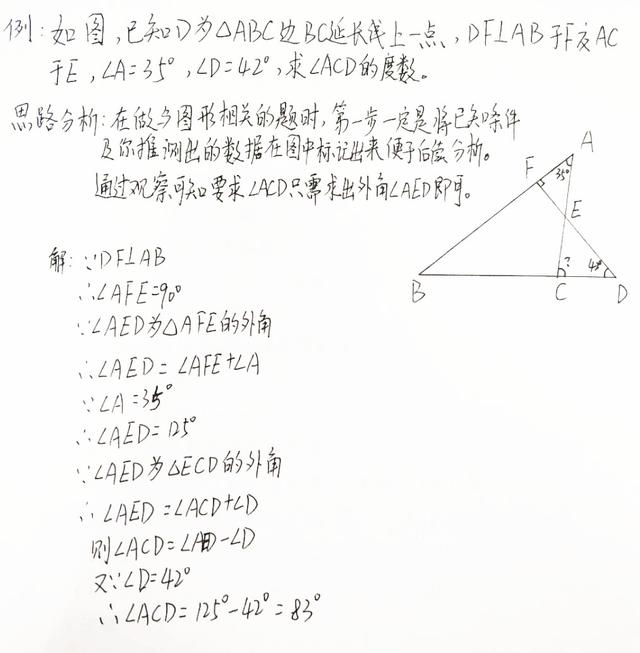 例:如图,已知D为△ABC边BC延长线上一点,DF⊥AB于F交AC
于E,∠A=35°,∠D=42°,求∠ACD的度数。
思路分析:在做与图形相关的题时,第一步一定是将已知条件
及你推测出的数据在图中标记出来便于后续分析。
通过观察可知要求∠ACD只需求出外角∠AED即可。
A
F
35°
E
?
42°
B
C
D
解:∵DF⊥AB
∴∠AFE=90°
∵∠AED为△AFE的外角
∴∠AED=∠AFE+∠A
∵∠A=35°
∴∠AED=125°
∵∠AED为△ECD的外角
∴∠AED=∠ACD+∠D
则∠ACD=∠AED-∠D
又∵∠D=42°
∴∠ACD=125°-42°=83°